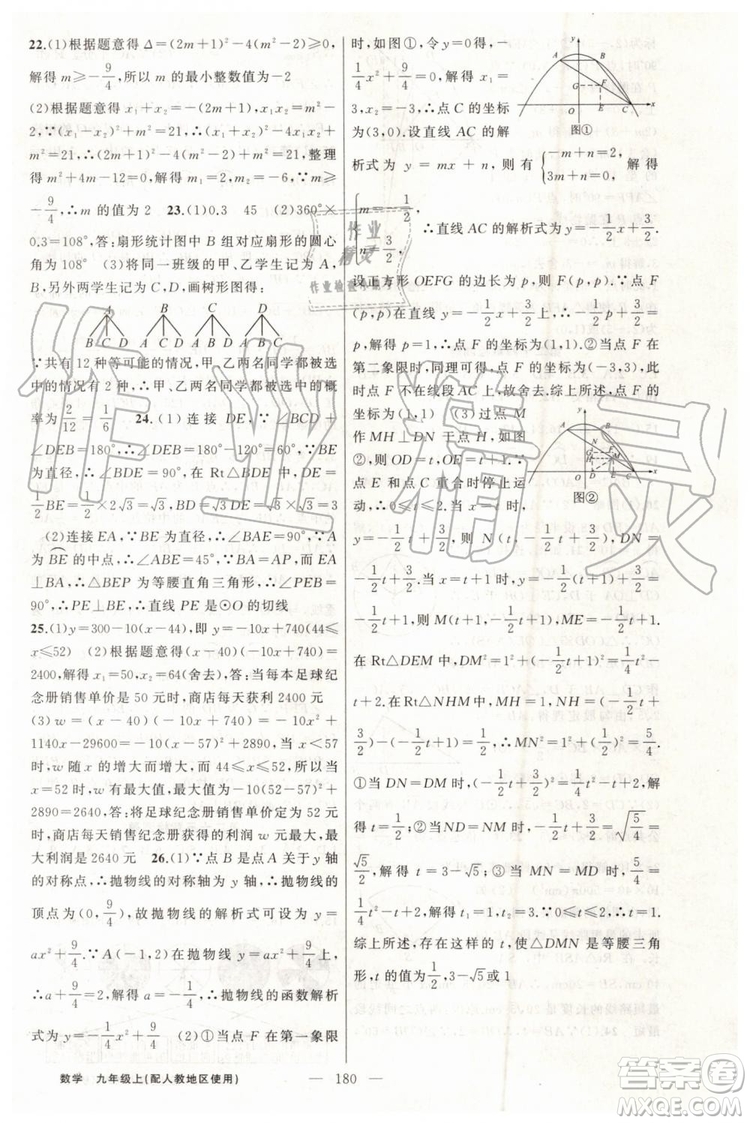 22.(1)根据题意得 Δ=(2m+1)²-4(m²-2)≥0,
解得 m≥-9/4,所以 m 的最小整数值为-2
(2)根据题意得 x₁+x₂=-(2m+1),x₁x₂=m²-
2,∵(x₁-x₂)²+m²=21,∴(x₁+x₂)²-4x₁x₂+
m²=21,∴(2m+1)²-4(m²-2)+m²=21,整理
得 m²+4m-12=0,解得 m₁=2,m₂=-6,∵m≥
-9/4,∴m 的值为 2 23.(1)0.3 45 (2)360°×
0.3=108°,答:扇形统计图中 B 组对应扇形的圆心
角为 108° (3)将同一班级的甲、乙学生记为 A、B,
另外两学生记为 C、D,画树形图得:
A B C D
∵共有 12 种等可能的情况,甲、乙两名同学都被选
中的情况有 2 种,∴甲、乙两名同学都被选中的概
率为 2/12=1/6 24.(1)连接 DE,∵∠BCD+
∠DEB=180°,∴∠DEB=180°-120°=60°,
∵BE 为直径,∴∠BDE=90°,在 Rt△BDE 中,DE=
1/2BE=1/2×2√3=√3,BD=√3DE=√3×√3=3
(2)连接 EA,∵BE 为直径,∴∠BAE=90°,∵A
为 BE 的中点,∴∠ABE=45°,∵BA=AP,而 EA
⊥BA,∴△BEP 为等腰直角三角形,∴∠PEB=
90°,∴PE⊥BE,∴直线 PE 是⊙O 的切线
25.(1)y=300-10(x-44),即 y=-10x+740(44≤
x≤52) (2)根据题意得(x-40)(-10x+740)=
2400,解得 x₁=50,x₂=64(舍去),答:当每本足球纪
念册销售单价是 50 元时,商店每天获利 2400 元
(3)w=(x-40)(-10x+740)=-10x²+
1140x-29600=-10(x-57)²+2890,当 x<57
时,w 随 x 的增大而增大,而 44≤x≤52,所以当
x=52 时,w 有最大值,最大值为-10(52-57)²+
2890=2640,答:将足球纪念册销售单价定为 52 元
时,商店每天销售纪念册获得的利润 w 元最大,最
大利润是 2640 元 26.(1)∵点 B 是点 A 关于 y 轴
的对称点,∴抛物线的对称轴为 y 轴,∴抛物线的
顶点为(0,9/4),故抛物线的解析式可设为 y=
ax²+9/4.∵A(-1,2)在抛物线 y=ax²+9/4 上,
∴a+9/4=2,解得 a=-1/4,∴抛物线的函数解析
式为 y=-1/4x²+9/4 (2)①当点 F 在第一象限
时,如图①,令 y=0 得,-
1/4x²+9/4=0,解得 x₁=
3,x₂=-3,∴点 C 的坐标
为(3,0).设直线 AC 的解
析式为 y=mx+n,则有{-m+n=2, 3m+n=0, 解得
{m=-1/2, n=3/2, ∴直线 AC 的解析式为 y=-1/2x+3/2.
设正方形 OEFG 的边长为 p,则 F(p,p),∵点 F
(p,p)在直线 y=-1/2x+3/2上,∴-1/2p+3/2=
p,解得 p=1,∴点 F 的坐标为(1,1);②当点 F 在
第二象限时,同理可得,点 F 的坐标为(-3,3),此
时点 F 不在线段 AC 上,故舍去;综上所述,点 F
的坐标为(1,1) (3)过点 M
作 MH⊥DN 于点 H,如图
②,则 OD=t,OE=t+1.∵
点 E 和点 C 重合时停止运
动,∴0≤t≤2.当 x=t 时,y
=-1/2t+3/2,则 N(t,-1/2t+3/2),DN=
-1/2t+3/2.当 x=t+1 时,y=-1/2(t+1)+3/2=
-1/2t+1,则 M(t+1,-1/2t+1),ME=-1/2t+1.
在 Rt△DEM 中,DM²=1²+(-1/2t+1)²=1/4t²-
t+2.在 Rt△NHM 中,MH=1,NH=(-1/2t+
3/2)-(-1/2t+1)=1/2,∴MN²=1²+(1/2)²=5/4.
①当 DN=DM 时,(-1/2t+3/2)²=1/4t²-t+2,解
得 t=1/2;②当 ND=NM 时,-1/2t+3/2=√(5/4)=
√5/2,解得 t=3-√5;③当 MN=MD 时,5/4=
1/4t²-t+2,解得 t₁=1,t₂=3.∵0≤t≤2,∴t=1.
综上所述,存在这样的 t,使△DMN 是等腰三角
形,t 的值为1/2,3-√5或 1
图①
图②
数学 九年级上(配人教地区使用) — 180 —
作业精灵
答案圈
MXQE.COM